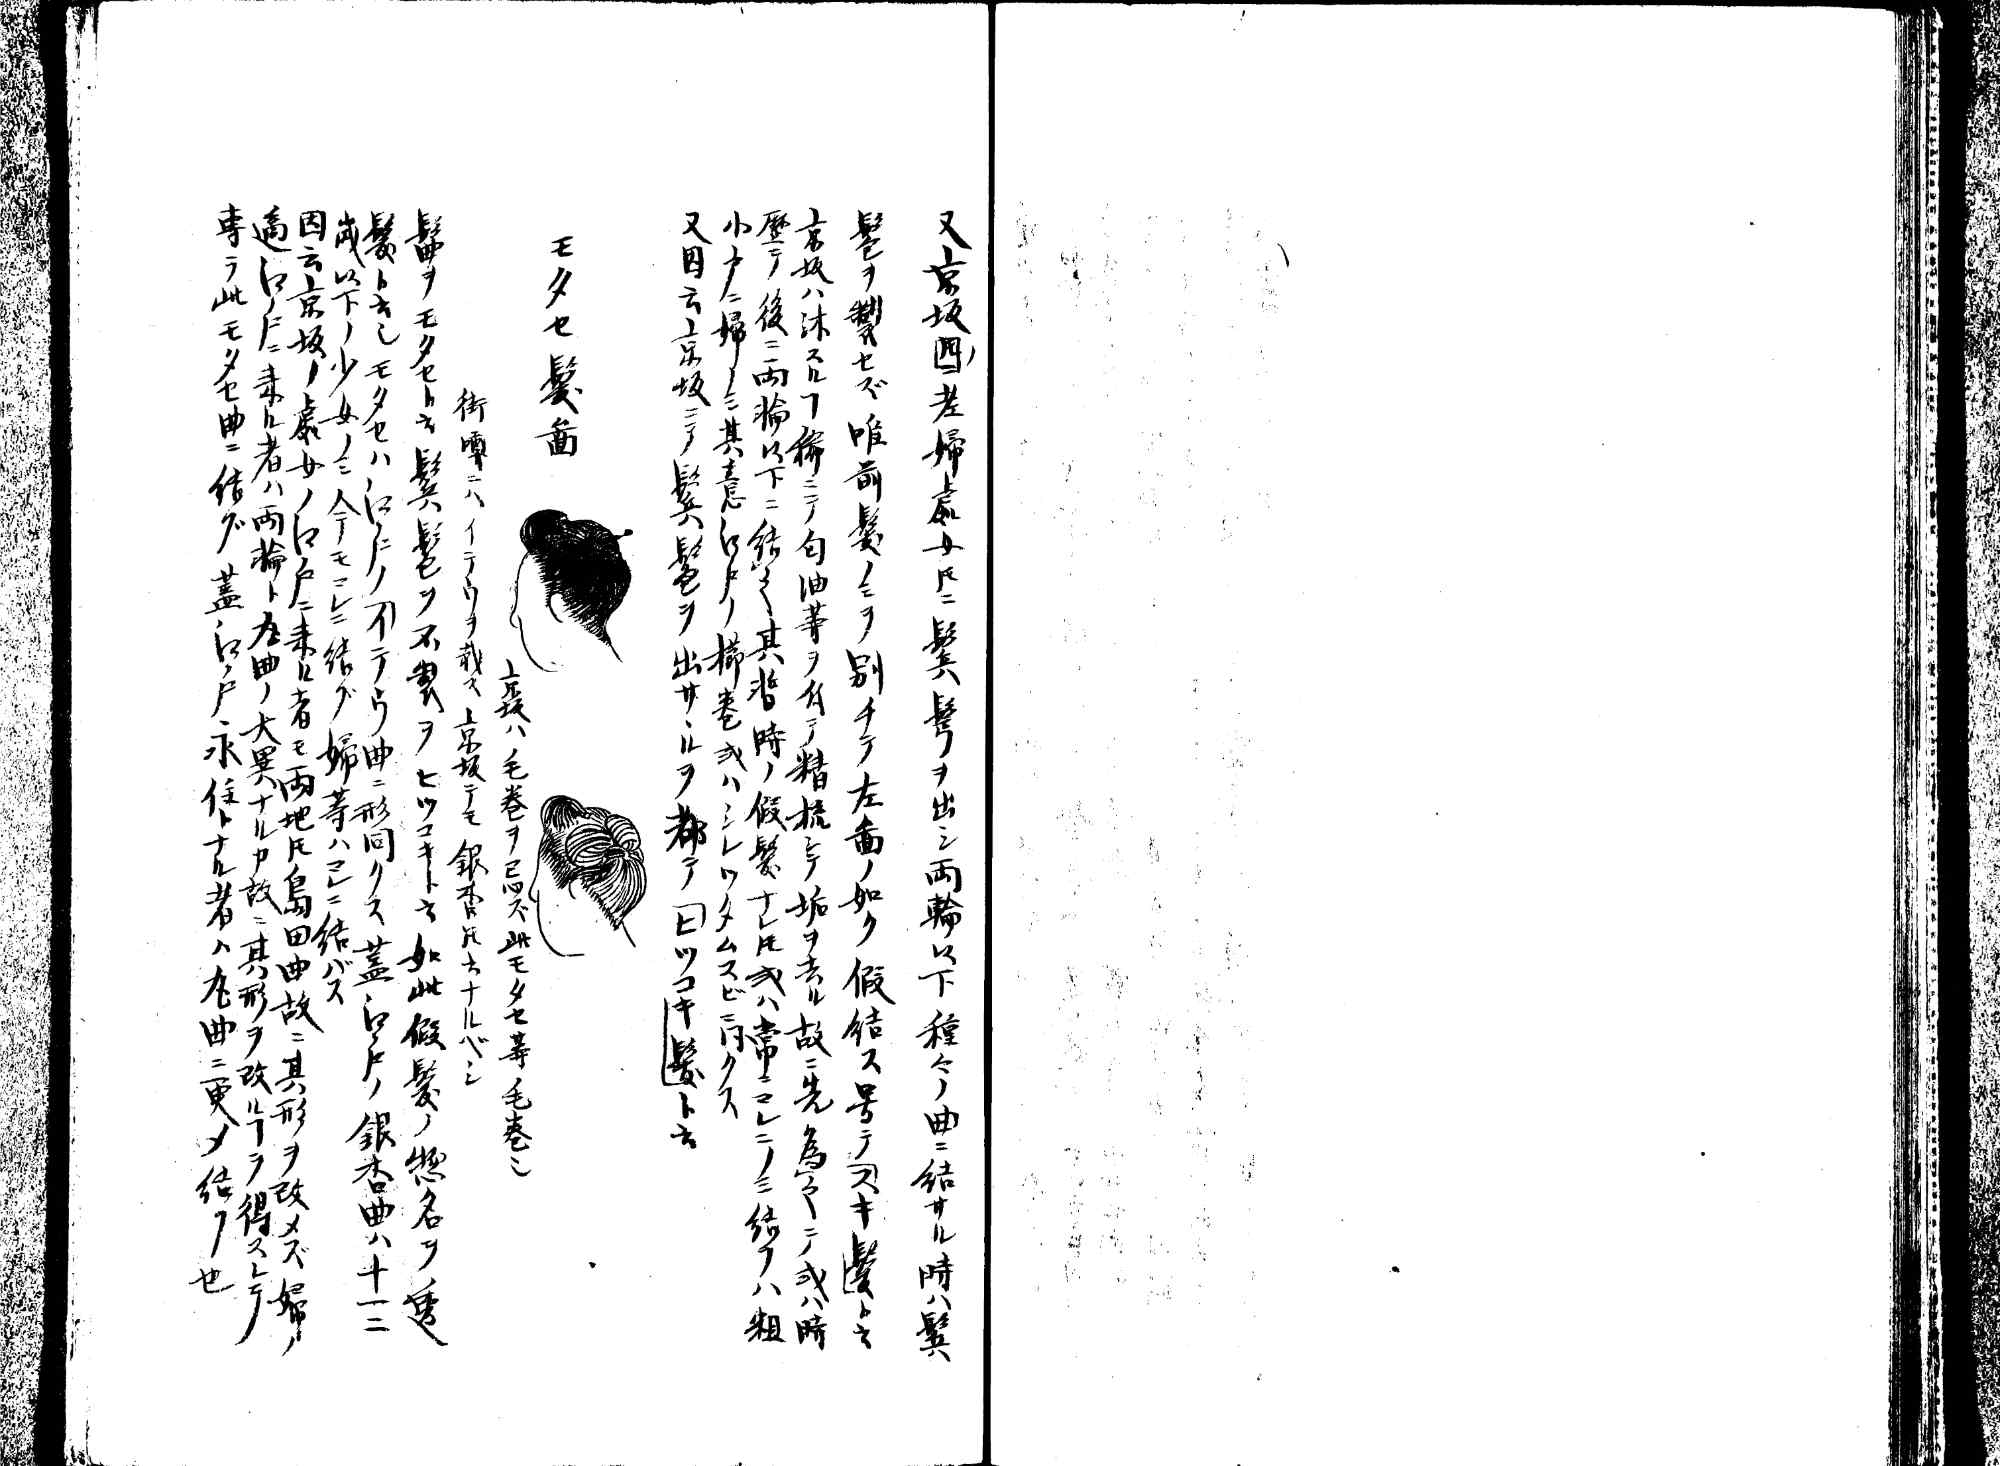 又京坂因老婦處女トモニ鬂髩ヲ出シ両輪以下種々ノ曲ニ結サル時ハ鬂
髱ヲ製セズ唯前髪ノミヲ別チテ左圖ノ如ク假結ス号テスキ髪ト云
京坂ハ沐スルヿ稀ニテ匂油等ヲ付テ精梳シテ垢ヲ去ル故ニ先為之テ或ハ時
歴テ後ニ両輪以下ニ結之其暫時ノ假髪ナレトモ或ハ常ニコレニノミ結フハ粗
小戸ノ婦ノミ其意江戸ノ櫛巻或ハシレツタムスビニ同クス
又因云京坂ニテ鬂髱ヲ出サヾルヲ都テヒツコキ髪ト云
モタセ髪圖
京坂ハ毛巻ヲ忌ズ此モタセ等毛巻也
街噂ニハイテウヲ載ス京坂ニテモ銀杏トモ云ナルベシ
髷ヲモタセト云鬂髱ヲ不製ヲヒツコキト云如此假髪ノ惣名ヲ
髪ト云也モタセハ江戸ノイテウ曲ニ形同クス蓋江戸ノ銀杏曲ハ十一二
歳以下ノ少女ノミ今モコレニ結グ婦等ハコレニ結バス
因云京坂ノ處女ノ江戸ニ来ル者モ両地トモ島田曲故ニ其形ヲ改メズ婦ノ
適江戸ニ来ル者ハ両輪ト丸曲ノ大異ナルカ故ニ其形ヲ改ルヿヲ得ストテ
専ラ此モタセ曲ニ結グ蓋江戸ニ永住トナル者ハ丸曲ニ更メ結フ也